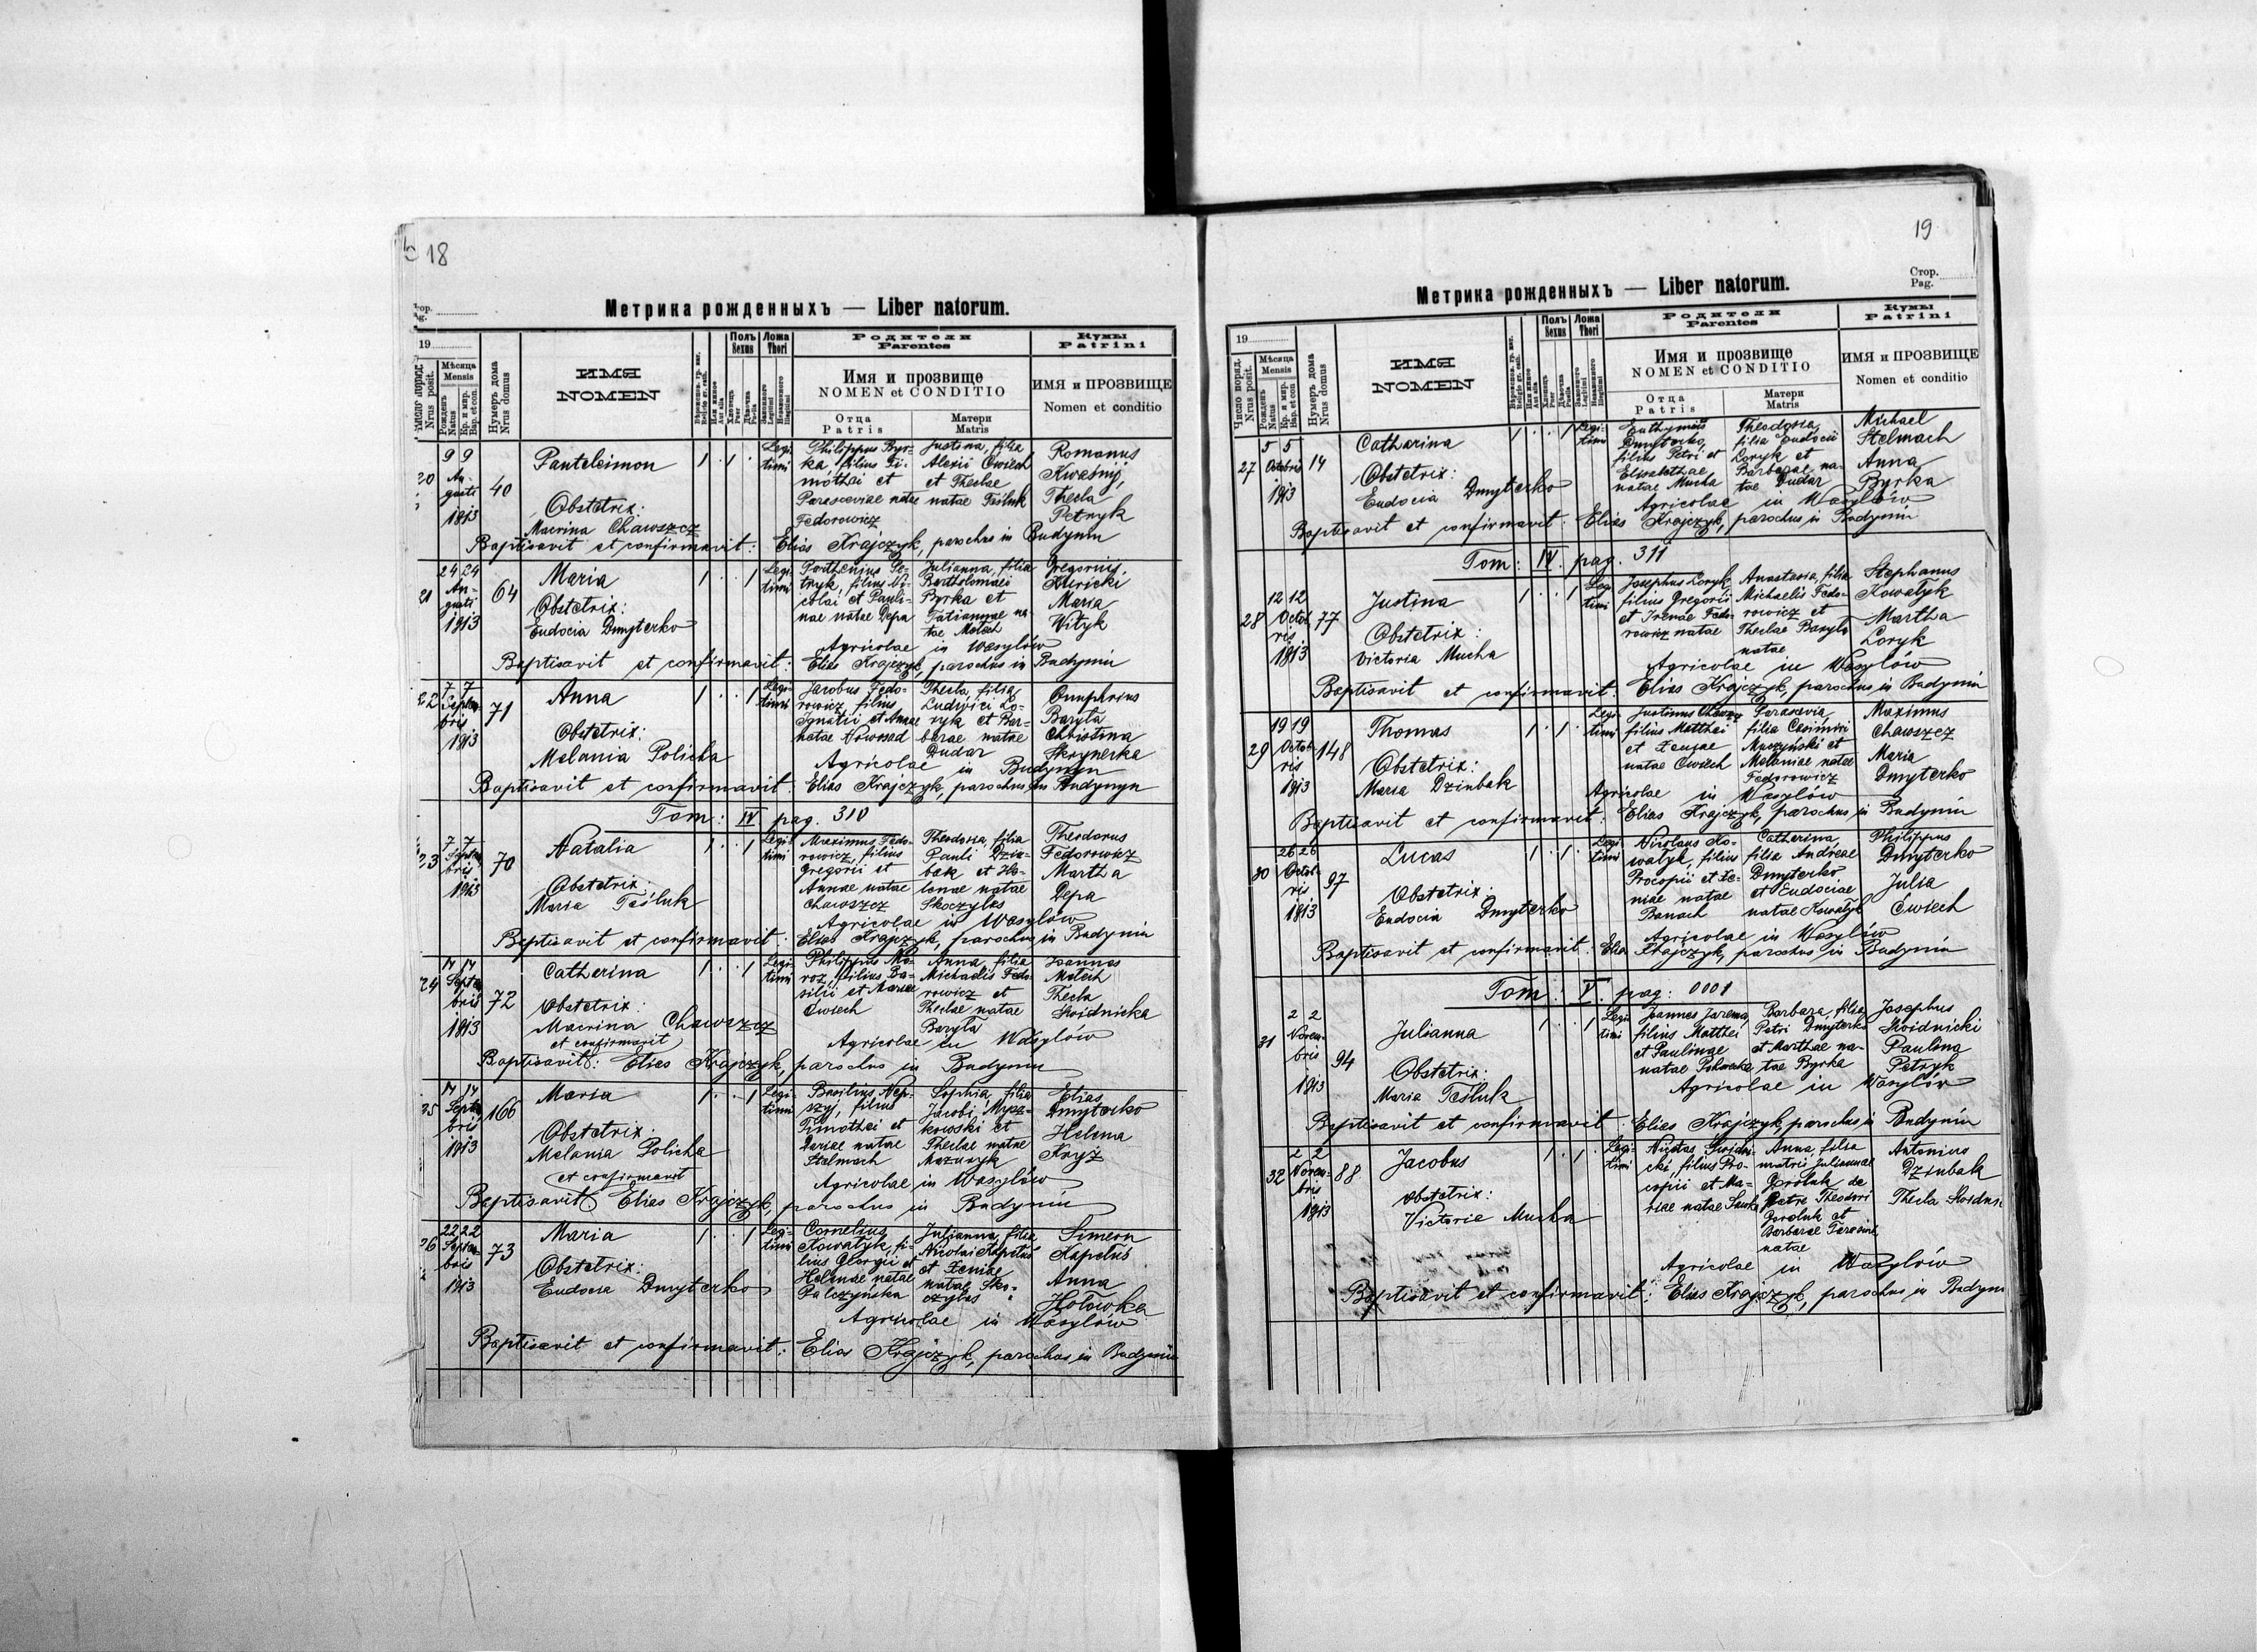 18
Метрика рожденныхъ — Liber natorum.
19
Мѣсяца
Mensis
Нумеръ дома
Nrus domus
ИМЯ
NOMEN
Полъ
Sexus
Ложа
Thori
Родители
Parentes
Кумы
Patrini
Имя и прозвище
NOMEN et CONDITIO
Отца
Patris
Матери
Matris
ИМЯ и ПРОЗВИЩЕ
Nomen et conditio
9 9
Au-
gusti
1913
40
Panteleimon
Obstetrix:
Macrina Chawszcz
1 . 1 .
Legi-
timi
Philippus Byr-
ka, filius Ti-
mothei et
Parasceviae natae
Fedorowicz
Justina, filia
Alexii Cwiech
et Theclae
natae Tesluk
Romanus
Kwasnij,
Thecla
Petryk
Baptisavit et confirmavit: Elias Krajczyk, parochus in Budynin
21
24 24
Au-
gusti
1913
64
Maria
Obstetrix:
Eudocia Dmyterko
1 . . 1
Legi-
timi
Parthenius Pe-
tryk, filius Ni-
colai et Pauli-
nae natae Depa
Julianna, filia
Bartholomaei
Byrka et
Tatiannae na-
tae Motech
Gregorius
Maria
Wityk
Agricolae in Wasylów
Baptisavit et confirmavit: Elias Krajczyk, parochus in Budynin
22
7 7
Septem-
bris
1913
71
Anna
Obstetrix:
Melania Policha
1 . . 1
Legi-
timi
Jacobus Fedo-
rowicz, filius
Ignatii et Annae
natae Nowosad
Thecla, filia
Ludovici Lo-
ryk et Bar-
barae natae
Dudar
Onuphrius
Baryla
Christina
Skrynerka
Agricolae in Budynyn
Baptisavit et confirmavit: Elias Krajczyk, parochus in Budynyn
Tom: IV pag. 310
23
7 7
Septem-
bris
1913
70
Natalia
Obstetrix:
Maria Tesluk
1 . . 1
Legi-
timi
Maximus Fedo-
rowicz, filius
Gregorii et
Annae natae
Chawszcz
Theodosia, filia
Pauli Dziu-
bak et He-
lenae natae
Skoczylas
Theodorus
Fedorowicz
Martha
Depa
Agricolae in Wasylów
Baptisavit et confirmavit: Elias Krajczyk, parochus in Budynin
24
17 17
Septem-
bris
1913
72
Catherina
Obstetrix:
Macrina Chawszcz
et confirmavit
1 . . 1
Legi-
timi
Philippus Mo-
roz, filius Ba-
silii et Mariae
Cwiech
Anna, filia
Michaelis Fedo-
rowicz et
Theclae natae
Baryla
Joannes
Motech
Thecla
Swidnicka
Agricolae in Wasylów
Baptisavit: Elias Krajczyk, parochus in Budynin
25
17 17
Septem-
bris
1913
166
Maria
Obstetrix:
Melania Policha
et confirmavit
1 . . 1
Legi-
timi
Basilius Nep-
szyj, filius
Timothei et
Dariae natae
Stelmach
Sophia, filia
Jacobi Mysz-
kowski et
Theclae natae
Mazuryk
Elias
Dmyterko
Helena
Kryz
Agricolae in Wasylów
Baptisavit: Elias Krajczyk, parochus in Budynin
26
22 22
Septem-
bris
1913
73
Maria
Obstetrix:
Eudocia Dmyterko
1 . . 1
Legi-
timi
Cornelius
Kowalyk, fi-
lius Georgii et
Helenae natae
Palczynska
Julianna, filia
Nicolai Kapelus
et Xeniae
natae Sko-
czylas
Simeon
Kapelus
Anna
Holowka
Agricolae in Wasylów
Baptisavit et confirmavit: Elias Krajczyk, parochus in Budynin
19
Стор.
Pag.
Метрика рожденныхъ — Liber natorum.
19
Число поряд.
Nrus posit.
Мѣсяца
Mensis
Нумеръ дома
Nrus domus
ИМЯ
NOMEN
Полъ
Sexus
Ложа
Thori
Родители
Parentes
Кумы
Patrini
Имя и прозвище
NOMEN et CONDITIO
Отца
Patris
Матери
Matris
ИМЯ и ПРОЗВИЩЕ
Nomen et conditio
27
5 5
Octobris
1913
14
Catharina
Obstetrix:
Eudocia Dmyterko
1 . . 1
Legi-
timi
Euthymius
Dmyterko,
filius Petri et
Elisabethae
natae Mucha
Theodosia,
filia Eudocii
Loryk et
Barbarae na-
tae Dudar
Michael
Stelmach
Anna
Byrka
Agricolae in Wasylów
Baptisavit et confirmavit: Elias Krajczyk, parochus in Budynin
Tom: IV. pag. 311
28
12 12
Octob-
ris
1913
77
Justina
Obstetrix:
Victoria Mucha
1 . . 1
Legi-
timi
Josephus Loryk
filius Gregorii
et Irenae Fedo-
rowicz natae
Anastasia, filia
Michaelis Fedo-
rowicz et
Theclae Baryla
natae
Stephanus
Kowalyk
Martha
Loryk
Agricolae in Wasylów
Baptisavit et confirmavit: Elias Krajczyk, parochus in Budynin
29
19 19
Octob-
ris
1913
148
Thomas
Obstetrix:
Maria Dziubak
1 . 1 .
Legi-
timi
Justinus Chawszcz
filius Matthei
et Xeniae
natae Cwiech
Parascevia,
filia Casimiri
Muszynski et
Melaniae natae
Fedorowicz
Maximus
Chawszcz
Maria
Dmyterko
Agricolae in Wasylów
Baptisavit et confirmavit: Elias Krajczyk, parochus in Budynin
30
26 26
Octob-
ris
1913
97
Lucas
Obstetrix:
Eudocia Dmyterko
1 . 1 .
Legi-
timi
Nicolaus Ko-
walyk, filius
Procopii et Xe-
niae natae
Banach
Catherina,
filia Andreae
Dmyterko
et Eudociae
natae Kowalyk
Philippus
Dmyterko
Julia
Cwiech
Agricolae in Wasylów
Baptisavit et confirmavit: Elia Krajczyk, parochus in Budynin
Tom: V. pag: 0001
31
2 2
Novem-
bris
1913
94
Julianna
Obstetrix:
Maria Tesluk
1 . . 1
Legi-
timi
Joannes Jarema,
filius Matthei
et Paulinae
natae
Barbara, filia
Petri Dmyterko
et Marthae na-
tae Byrka
Josephus
Swidnicki
Paulina
Petryk
Agricolae in Wasylów
Baptisavit et confirmavit: Elias Krajczyk parochus in Budynin
32
2 2
Novem-
bris
1913
88
Jacobus
Obstetrix:
Victoria Mucha
1 . 1 .
Legi-
timi
Nicetas Swidni-
cki, filius Pro-
copii et Ma-
riae natae
Anna, filia
matris Juliannae
Goroluk de
patre Theodori
Goroluk et
Barbarae
natae
Antonius
Dziubak
Thecla Swidnic
Agricolae in Wasylów
Baptisavit et confirmavit: Elias Krajczyk, parochus in Budynin